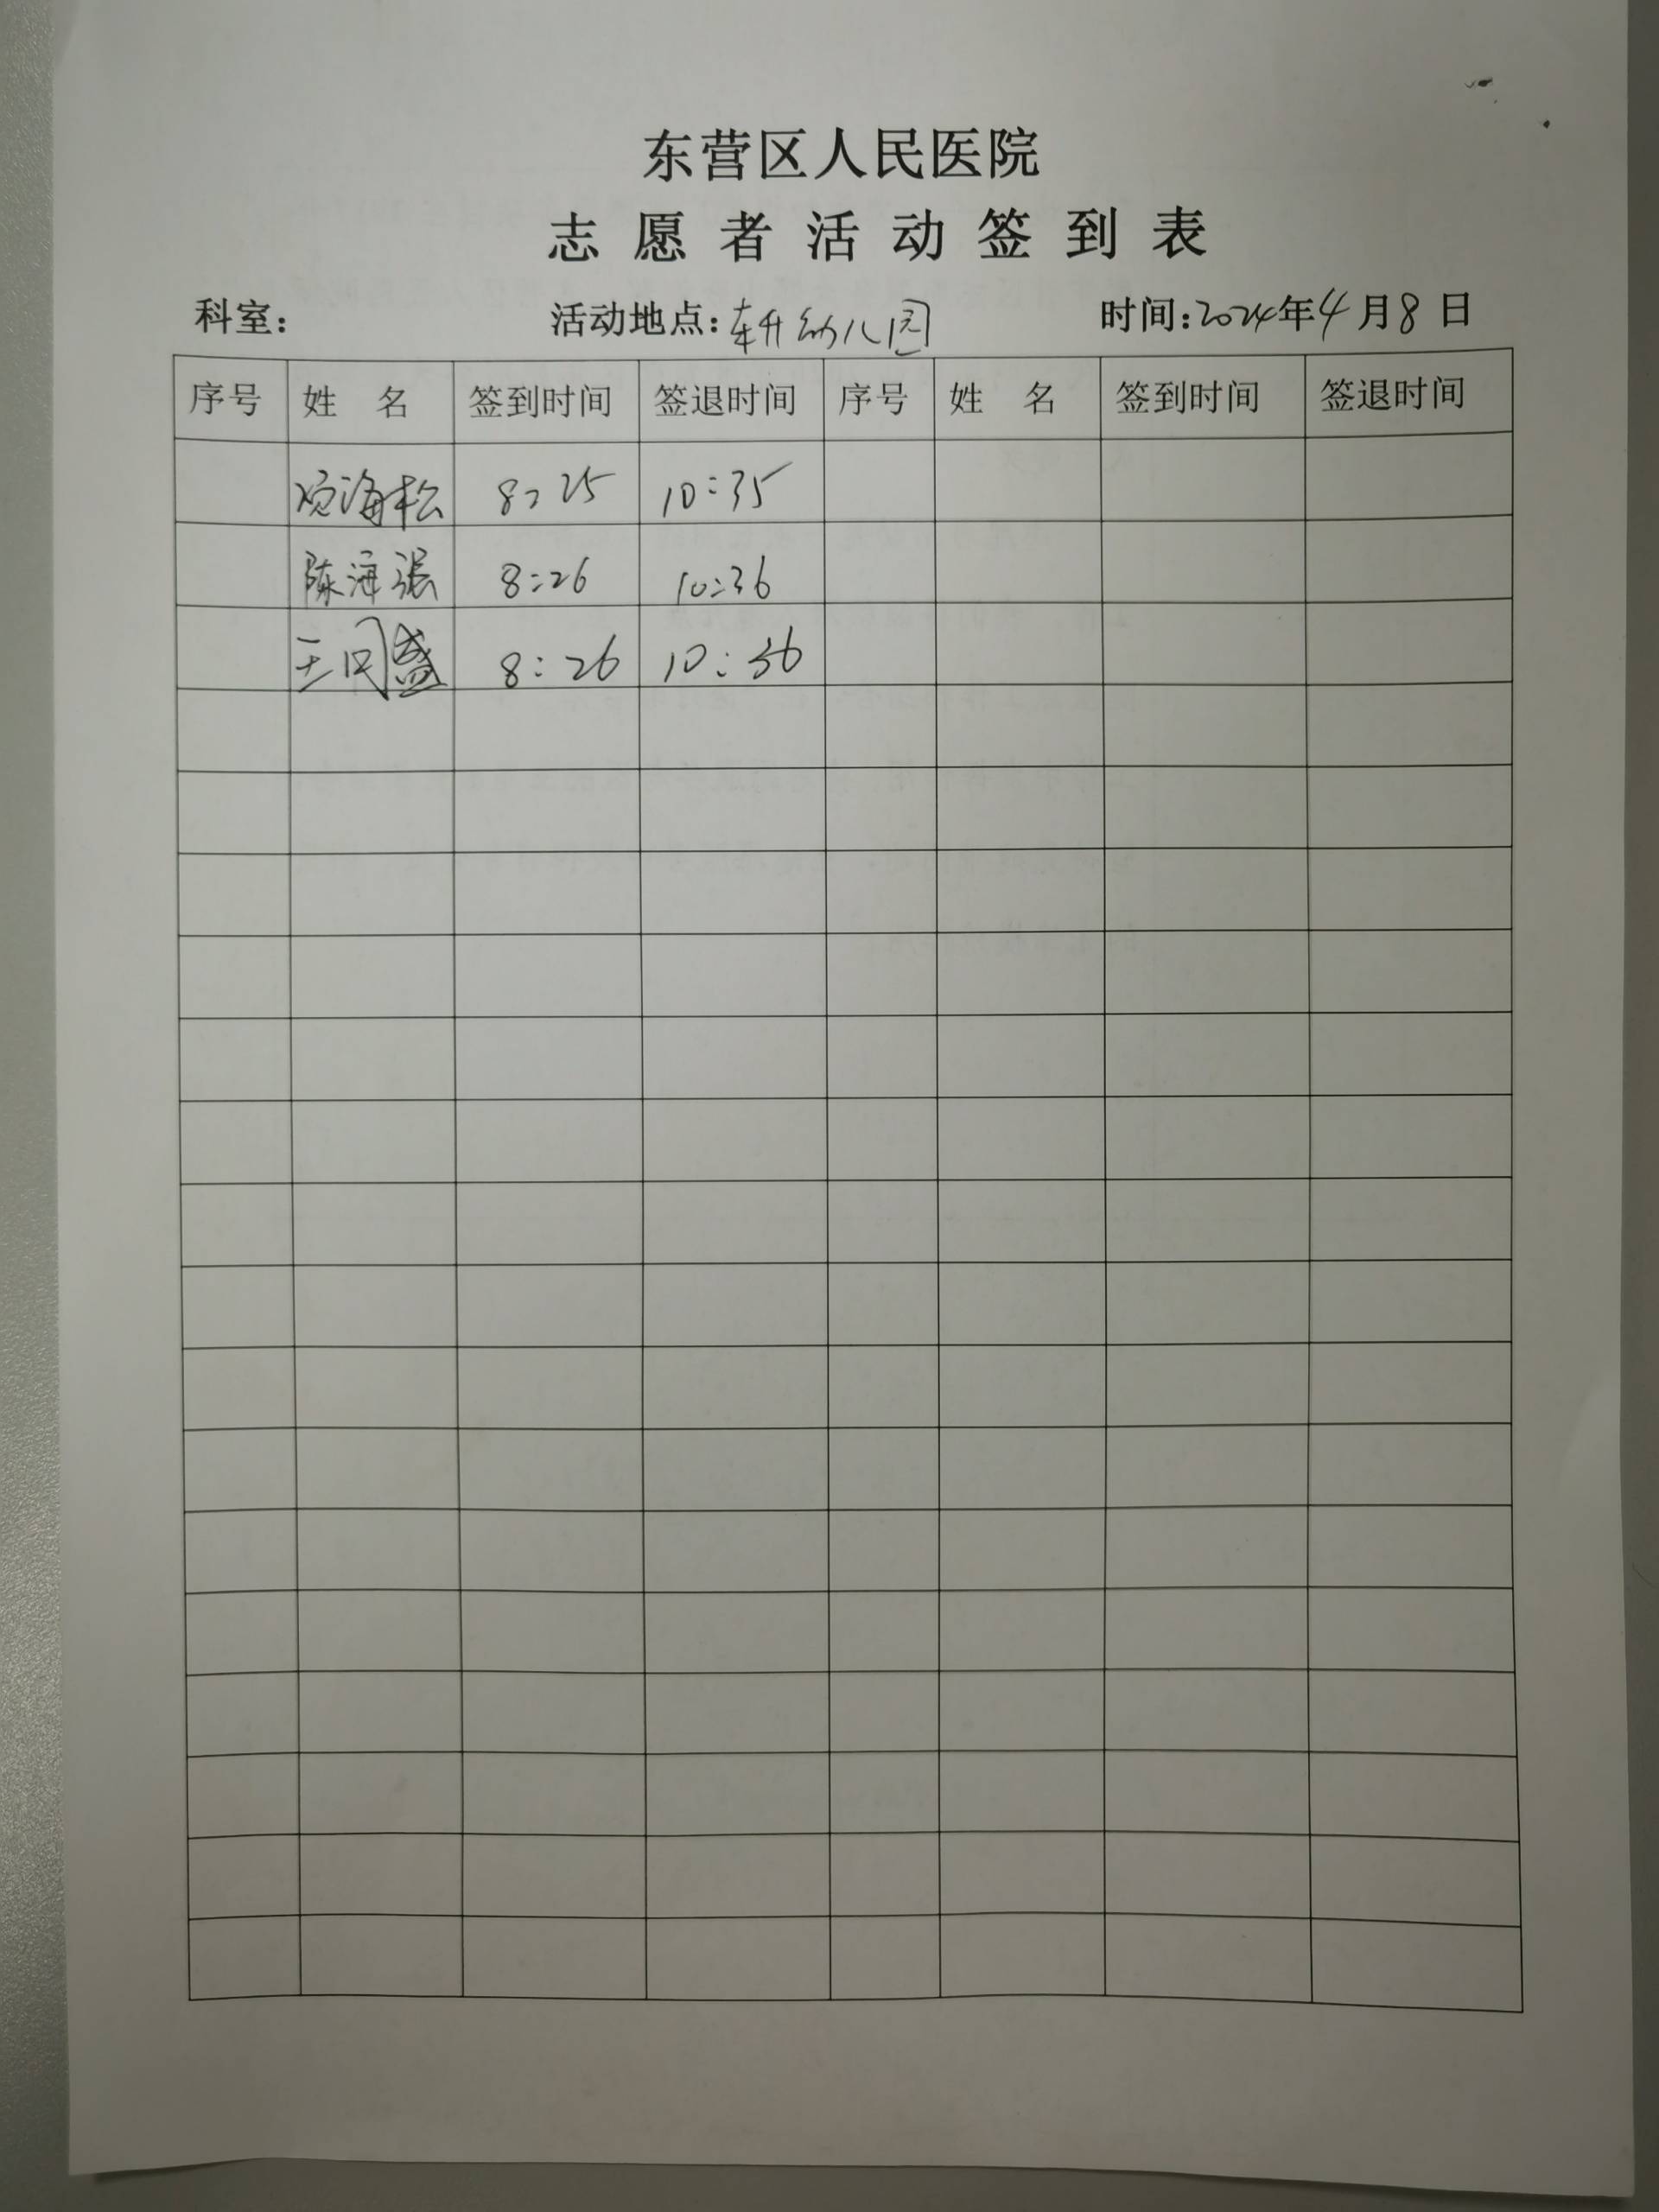 东营区人民医院
志愿者活动签到表
科室： 活动地点：幼儿园 时间：2024年4月8日
序号 姓名 签到时间 签退时间 序号 姓名 签到时间 签退时间
项海松 8:25 10:35
陈海强 8:26 10:36
王同盛 8:26 10:36